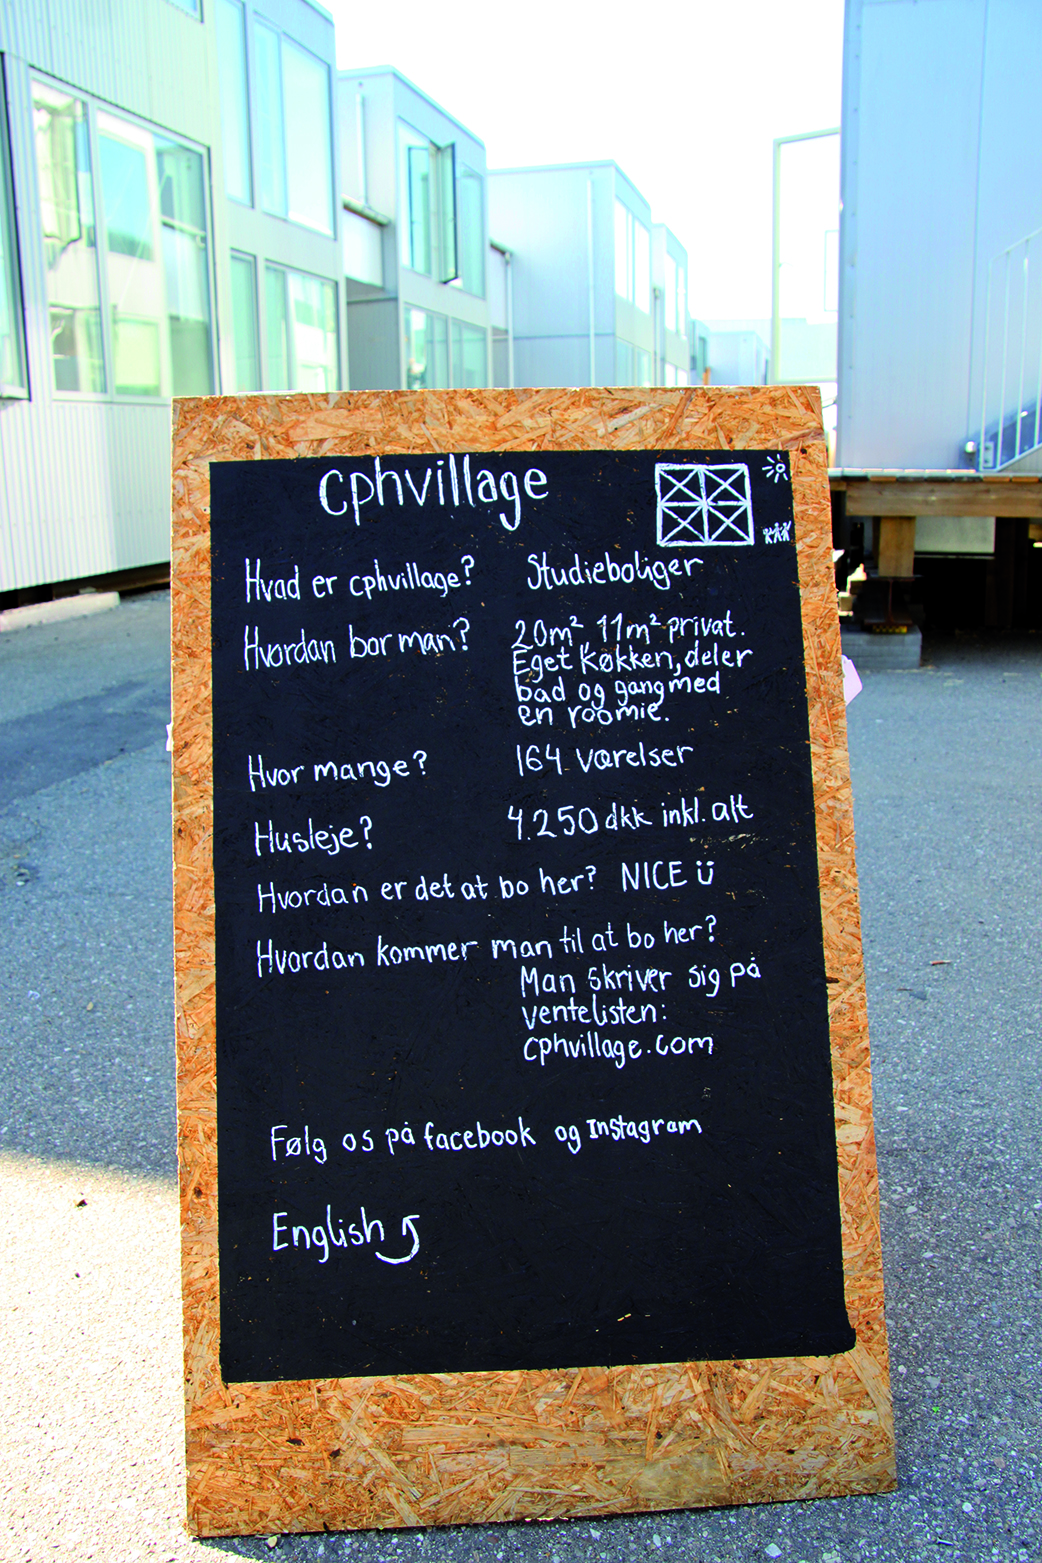 cphvillage
Hvad er cphvillage? Studieboliger
Hvordan bor man? 20m², 11m² privat.
Eget køkken, deler
bad og gang med
en roomie.
Hvor mange? 164 værelser
Husleje? 4.250 dkk inkl. alt
Hvordan er det at bo her? NICE Ü
Hvordan kommer man til at bo her?
Man skriver sig på
ventelisten:
cphvillage.com
Følg os på facebook og Instagram
English